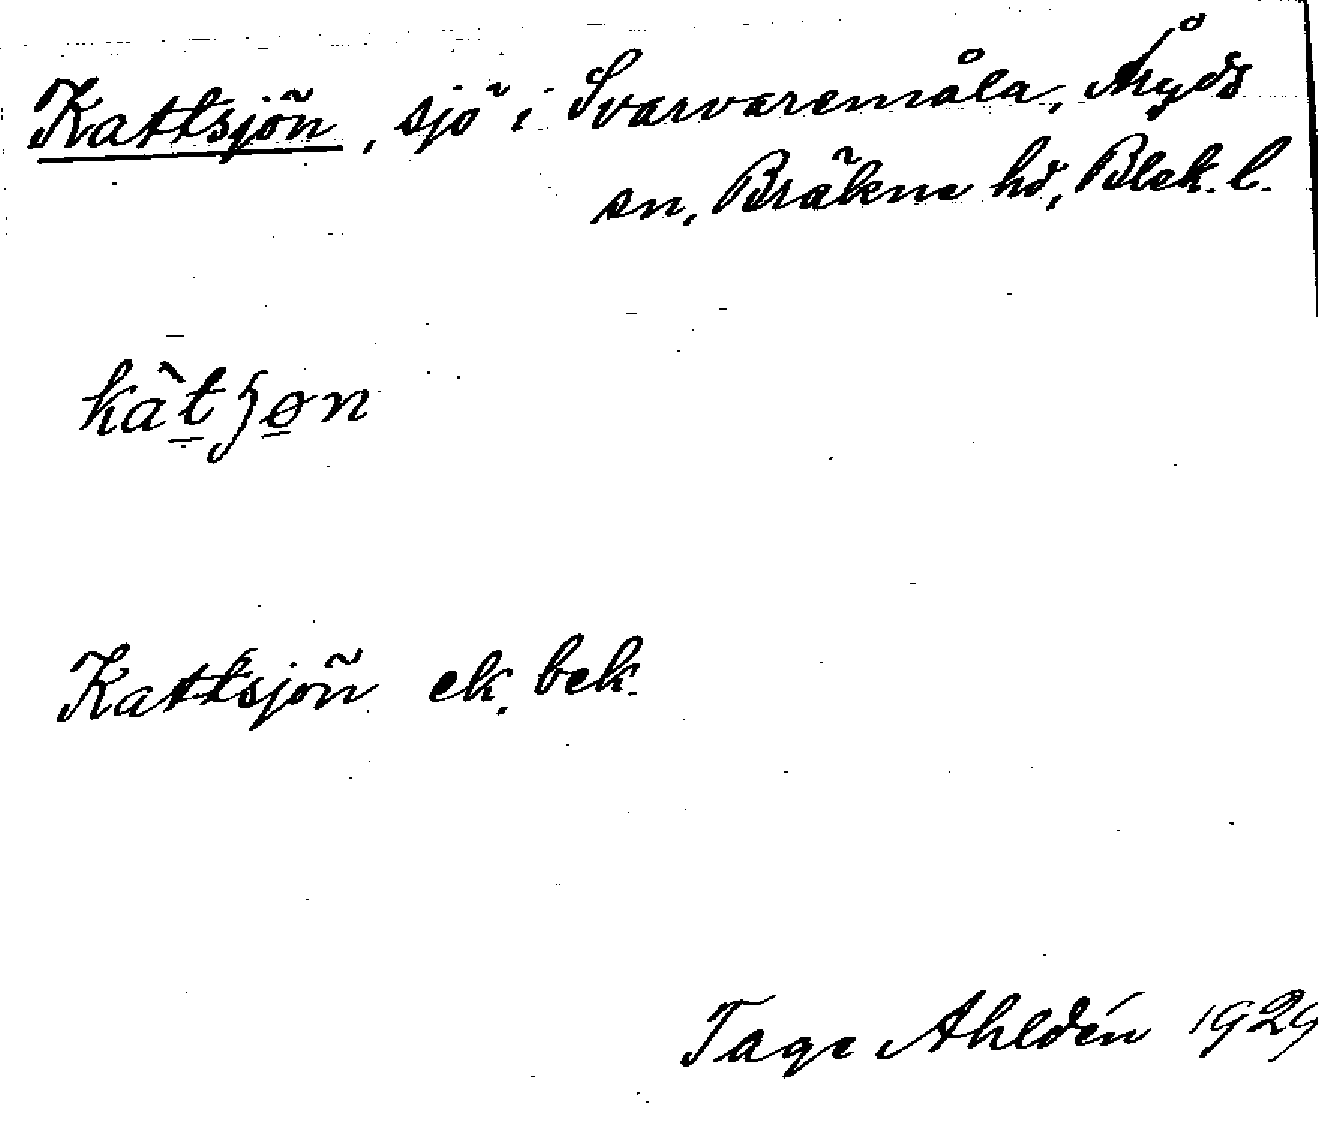 Kattsjön, sjö i Svarvaremåla, Åryds
sn, Bräkne hd, Blek. l.
kàtʃøn
Kattsjön ek. bek.
Tage Ahldén 1929